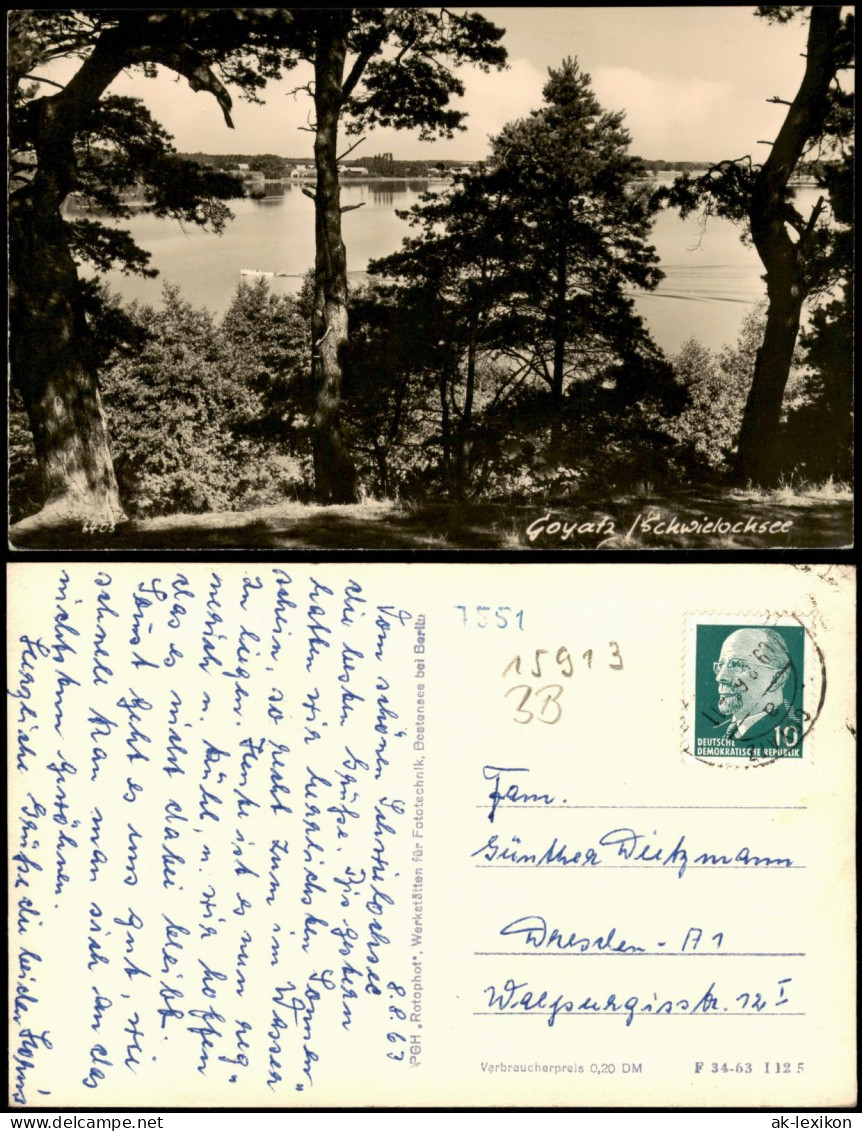 6403
Goyatz / Schwielochsee
Vom schönen Schwielochsee
8.8.63
die besten Grüße. Bis gestern
hatten wir herrlichsten Sonnen-
schein, so recht zum im Wasser
zu liegen. Heute ist es nun reg-
nerisch u. kühl, u. wir hoffen
das es nicht dabei bleibt.
Sonst geht es uns gut, wie
schnell kann man sich an das
nichtstun gewöhnen.
Herzliche Grüße die beiden
PGH „Rotophot", Werkstätten für Fototechnik, Bestensee bei Berlin
7551
15913
3B
10
DEUTSCHE
DEMOKRATISCHE REPUBLIK
Fam.
Günther Dietzmann
Dresden - A1
Walpurgisstr. 12 I
Verbraucherpreis 0,20 DM
F 34-63 I 12 5
www.ansichtskarten-lexikon.de
ak-lexikon